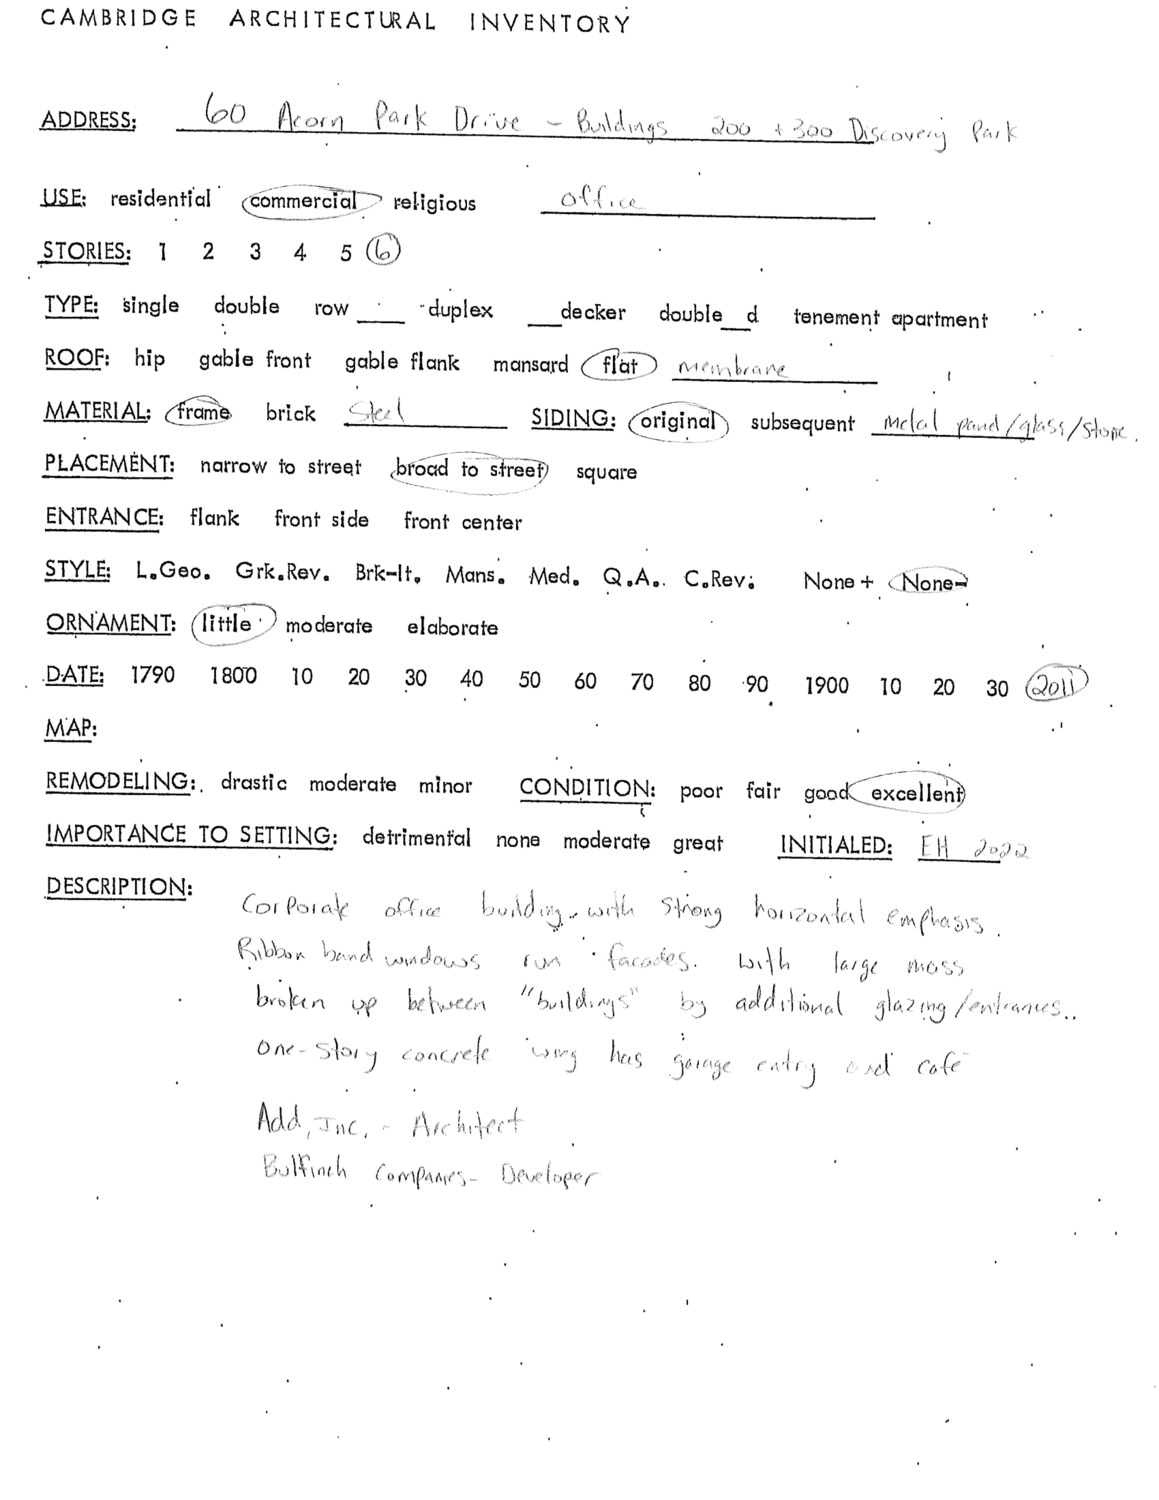 CAMBRIDGE ARCHITECTURAL INVENTORY
ADDRESS: 60 Acorn Park Drive - Buildings 200 + 300 Discovery Park
USE: residential commercial religious office
STORIES: 1 2 3 4 5 6
TYPE: single double row ___ duplex ___decker double__d tenement apartment
ROOF: hip gable front gable flank mansard flat membrane
MATERIAL: frame brick Steel SIDING: original subsequent Metal panel/glass/stone.
PLACEMENT: narrow to street broad to street square
ENTRANCE: flank front side front center
STYLE: L.Geo. Grk.Rev. Brk-It. Mans. Med. Q.A. C.Rev: None+ None-
ORNAMENT: little moderate elaborate
DATE: 1790 1800 10 20 30 40 50 60 70 80 90 1900 10 20 30 2011
MAP:
REMODELING: drastic moderate minor CONDITION: poor fair good excellent
IMPORTANCE TO SETTING: detrimental none moderate great INITIALED: EH 2022
DESCRIPTION: Corporate office building with strong horizontal emphasis.
Ribbon band windows run facades. with large mass
broken up between "buildings" by additional glazing/entrances..
one-story concrete wing has garage entry and café
Add, Inc. - Architect
Bulfinch Companies - Developer